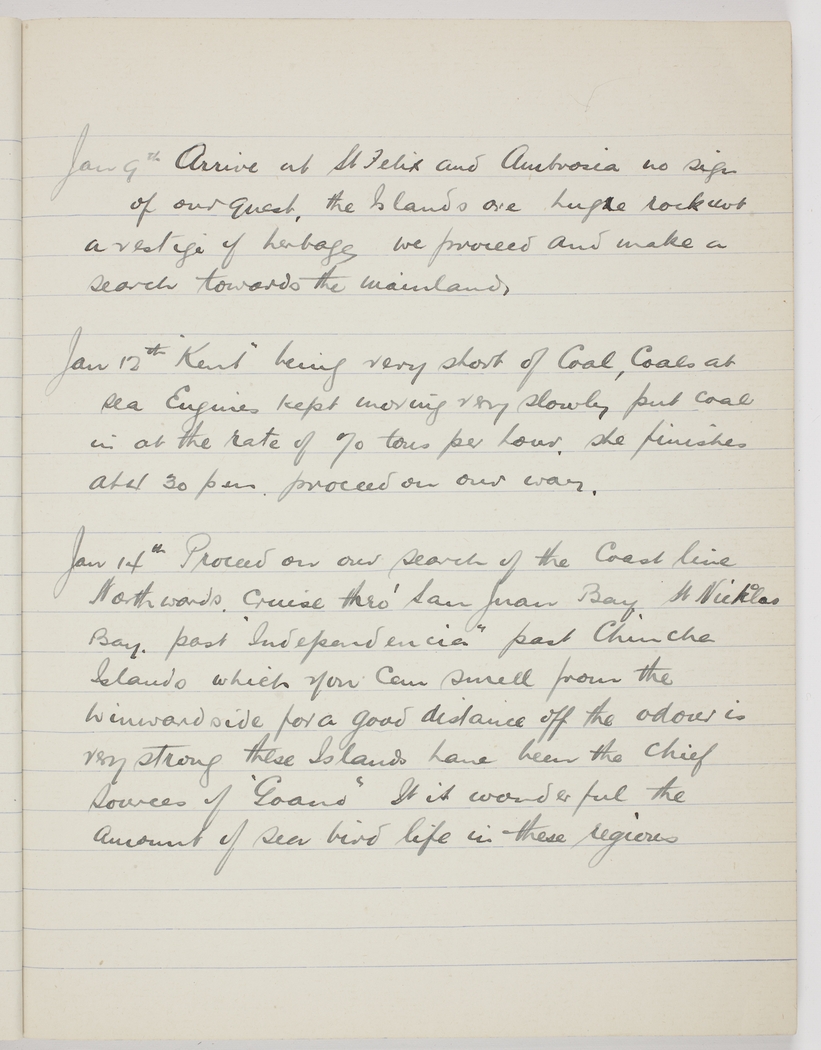 Jan 9th Arrive at St Felix and Ambrosia no sign
of our quest, the Islands are huge rock not
a vestige of herbage, we proceed and make a
search towards the mainland,
Jan 12th "Kent" being very short of Coal, Coals at
sea Engines kept moving very slowly put coal
in at the rate of 70 tons per hour. she finishes
at 30 pm. proceed on our way.
Jan 14th Proceed on our search of the Coast line
Northwards. Cruise thro' San Juan Bay St Nicklas
Bay. past "Independencia" past Chincha
Islands which you can smell from the
winward side for a good distance off the odour is
very strong these Islands have been the chief
sources of "Goano" It is wonderful the
amount of sea bird life in these regions